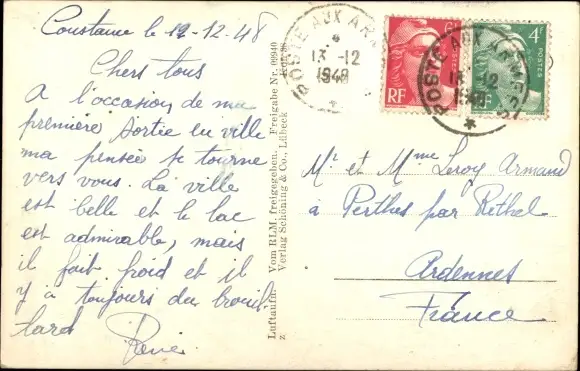 Constance le 12-12.48
Chers tous
A l'occasion de ma
première sortie en ville
ma pensée se tourne
vers vous. La ville
est belle et le lac
est admirable, mais
il fait froid et il
y a toujours du brouil-
lard
Luftaufn. Vom RLM. freigegeben. Freigabe Nr. 09940
Verlag Schöning & Co., Lübeck
z
POSTE AUX ARMEES
13-12
1948
*
RF
POSTES
4F
POSTE AUX ARMEES
13-12
1948
*
Mr et Mme Leroy Armand
à Perthes par Rethel
Ardennes
France